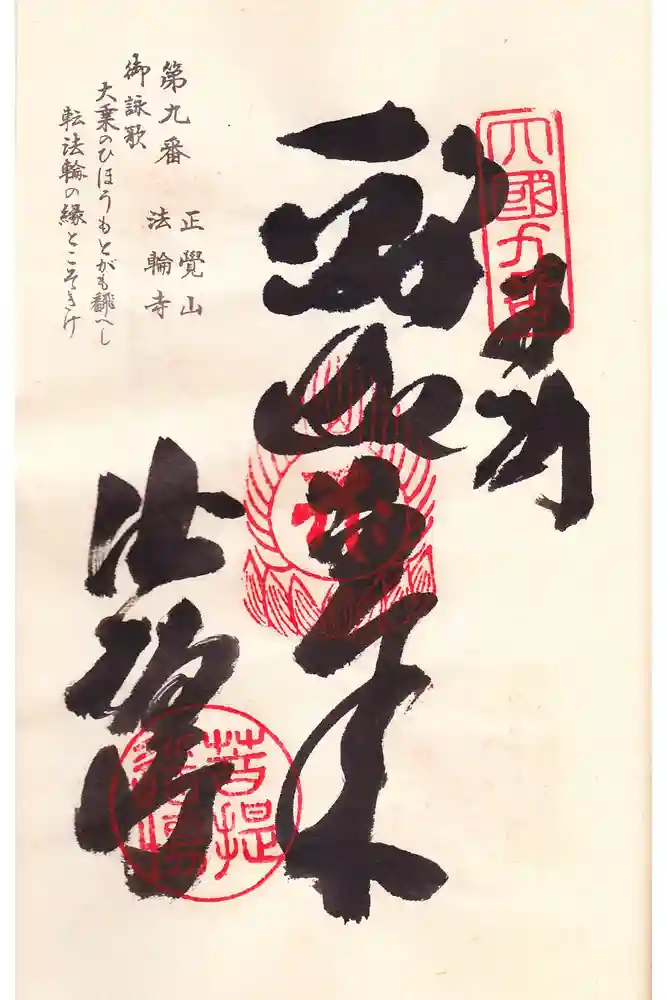 四國九番
奉納
釈迦如来
法輪寺
菩提
第九番
正覺山
法輪寺
御詠歌
大乗のひほうもとがも飜へし
転法輪の縁とこそきけ